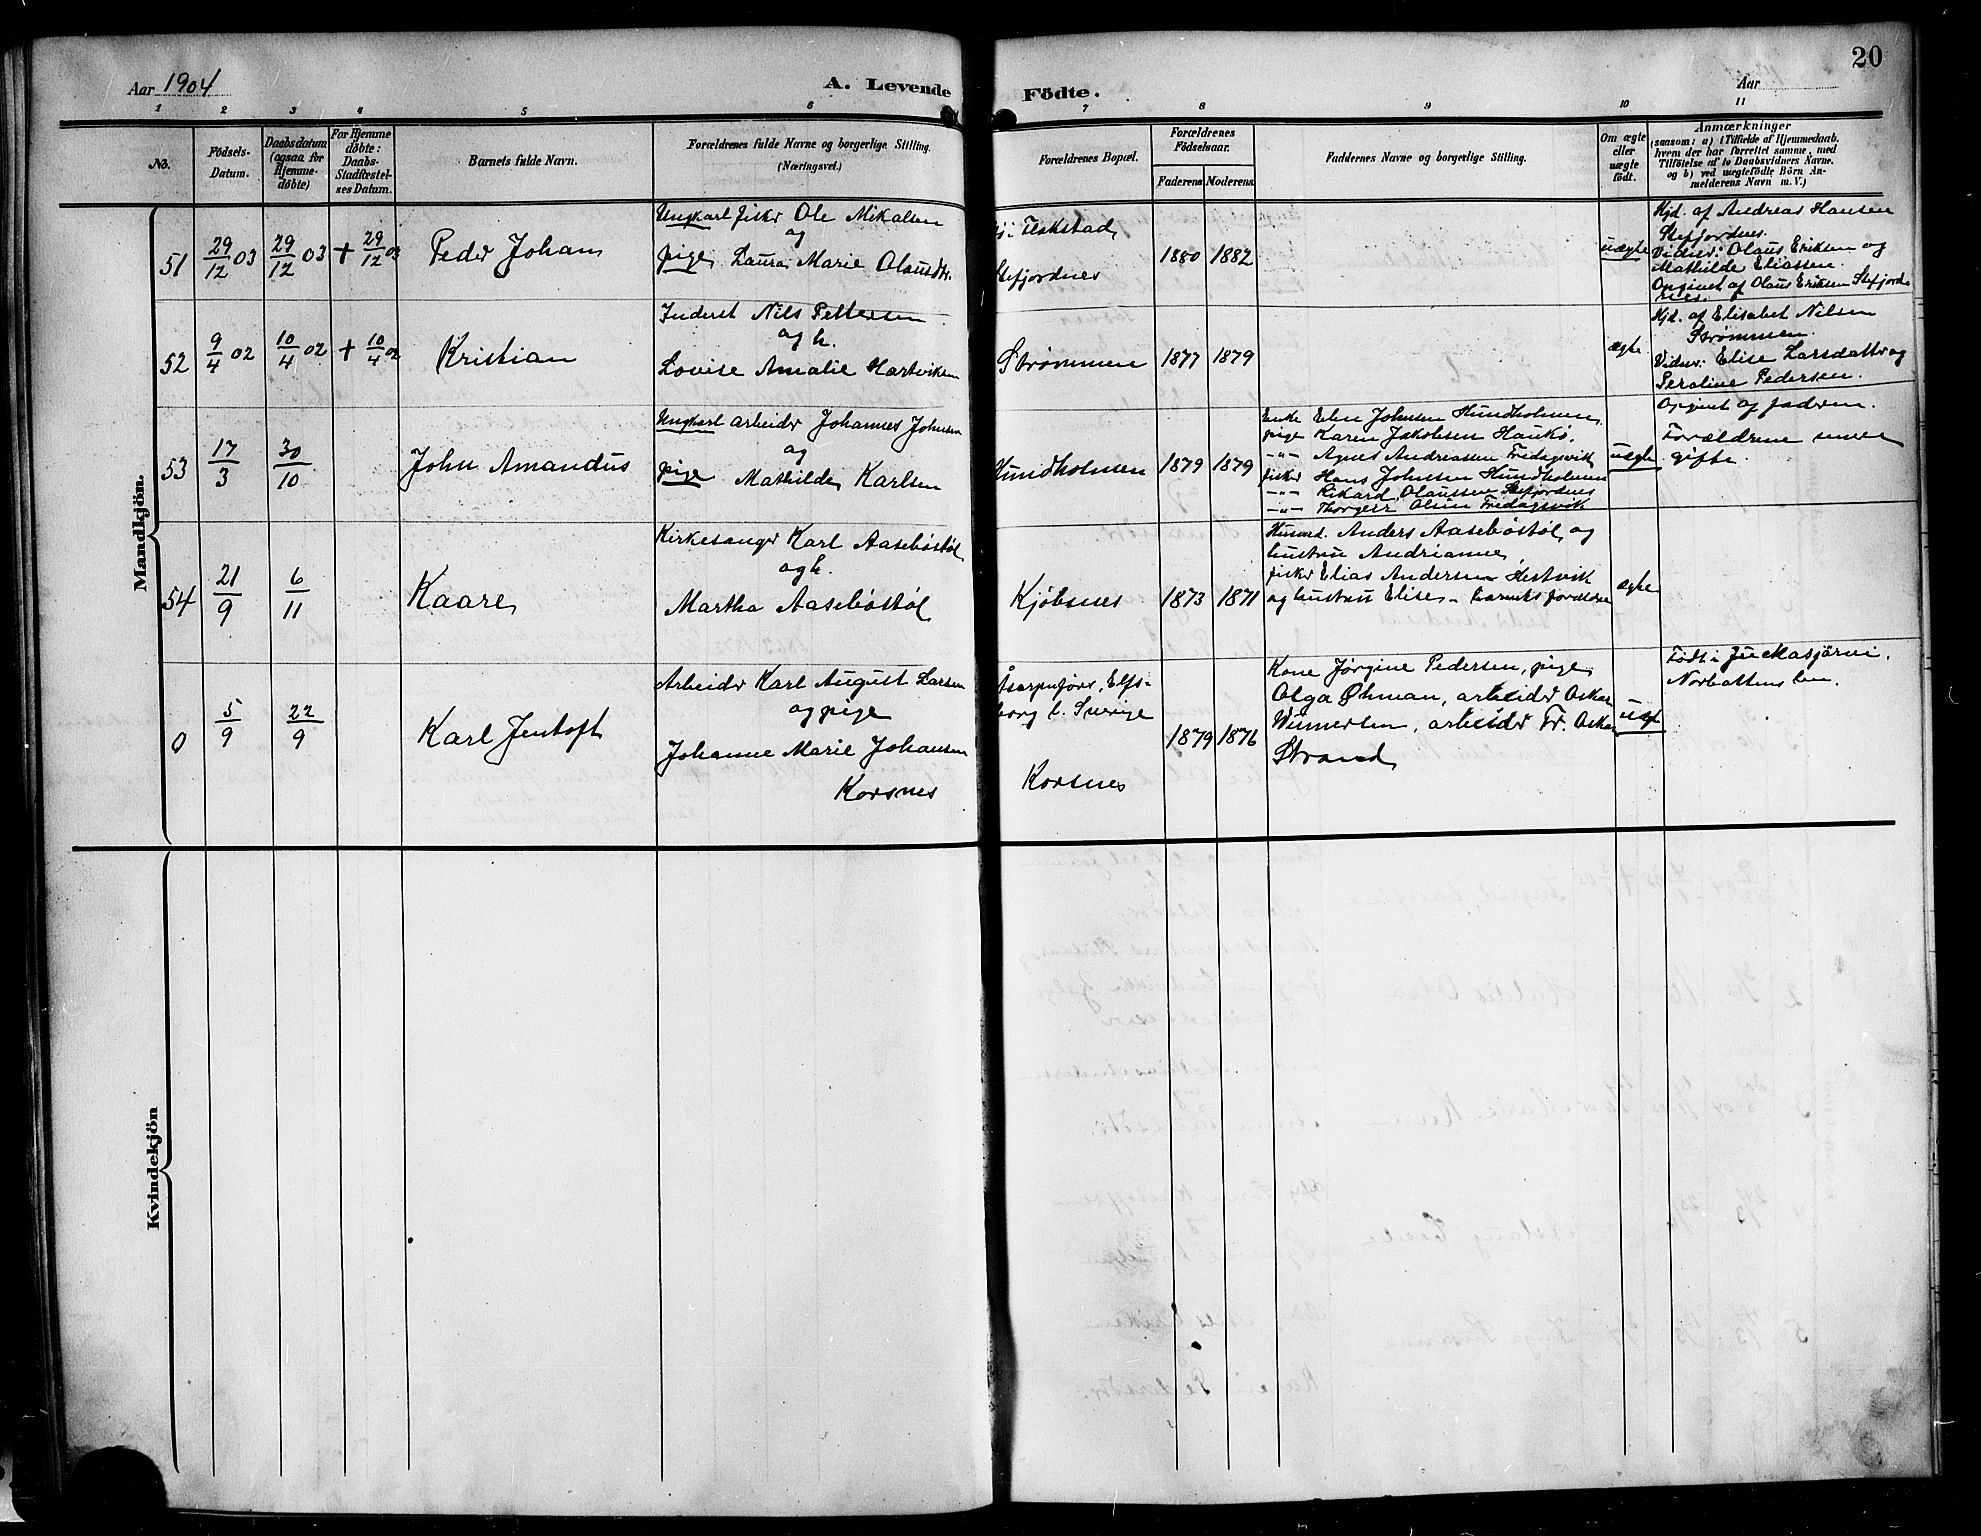 Aar 1904
A. Levende Födte.
Aar
20
1 2 3 4 5 6 7 8 9 10 11
No.
Födsels-
Datum.
Daabsdatum
(ogsaa for
Hjemme-
döbte)
For Hjemme
döbte:
Daabs-
Stadfæstel-
ses Datum.
Barnets fulde Navn.
Forældrenes fulde Navne og borgerlige Stilling.
(Næringsvei.)
Forældrenes Bopæl.
Forældrenes
Födselsaar.
Faderens. Moderens.
Faddernes Navne og borgerlige Stilling.
Om ægte
eller
uægte
født.
Anmærkninger
(saasom: a) i Tilfælde af Hjemmedaab.
hvem der har forrettet samme, med
Tilföielse af to Daabsvidners Navne.
og b) ved uægtefödte Börn An-
melderens Navn m. V.)
Mandkjön.
51 29/12 03 29/12 03 + 29/12 03
Peder Johan
Ungkarl fisker Ole Mikalsen
og
pige Laura Marie Olausdtr.
Flakstad,
Stefjordnes
1880 1882
uægte
Hjd. af Andreas Hansen
Stefjordnes.
Vidner: Olaus Eriksen og
Mathilde Eliassen.
Opgivet af Olaus Eriksen Stefjord-
nes.
52 9/4 02 10/4 02 + 10/4 02
Kristian
Inderst Nils Pettersen
og h.
Lovise Amalie Hartviksen
Strømmen
1877 1879
ægte
Hjd. af Elisabet Nilsen
Strømmen.
Vidner: Elise Larsdatter og
Peroline Pedersen.
Opgivet af faderen.
53 17/3 30/10
John Amandus
Ungkarl arbeider Johannes Johnsen
og
pige Mathilde Karlsen
Hundholmen
1879 1879
Enke Elen Johnsen Hundholmen,
pige Karen Jakobsen Haukø,
-"- Agnes Andreassen Fredagsvik
fisker Hans Johnsen Hundholmen
-"- Rikard Olaussen Stefjordnes
-"- Thorgeir Olsen Fredagsvik
uægte
Forældrene senere
gifte.
54 21/9 6/11
Kaare
Kirkesanger Karl Aasebøstøl
og h.
Martha Aasebøstøl
Kjøbsnes
1873 1871
Husmd. Anders Aasebøstøl og
hustru Andrianne,
fisker Elias Andersen Hestvik
og hustru Elise, - Barnets forældre
ægte
0 5/9 22/9
Karl Jentoft
Arbeider Karl August Larsen
og pige
Johanne Marie Johansen
Korsnes
Elfs-
borg l. Sverige
Korsnes
1879 1876
Kone Jørgine Pedersen, pige
Olga Øhman, arbeider Oskar
Wennersten, arbeider Fr. Oskar
Strand
uægt
Født i Juckasjärvi,
Norbottens len.
Kvindekjön